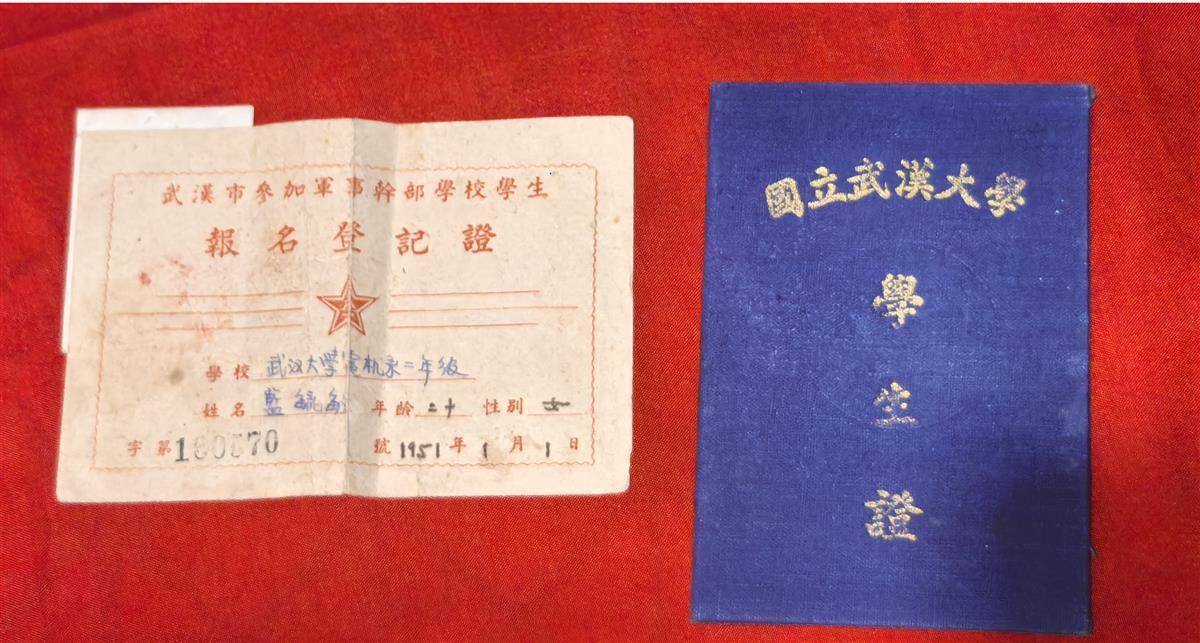 武漢市參加軍事幹部學校學生
報名登記證
學校 武汉大學電机系二年級
姓名 藍毓 年齡 二十 性別 女
字第180570號 1951年1月1日
國立武漢大學
學
生
證